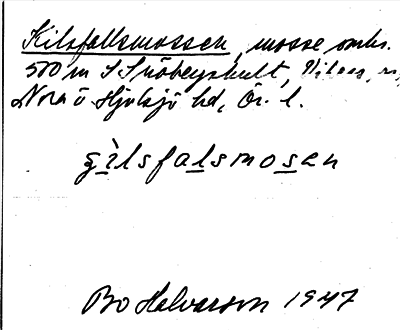 Kilsfallsmossen, mosse omkr.
500 m S Snöbergshult,
Nora o Hjulsjö hd, Ör. l.
gìlsfalsmosen
Bo Halvarson 1947